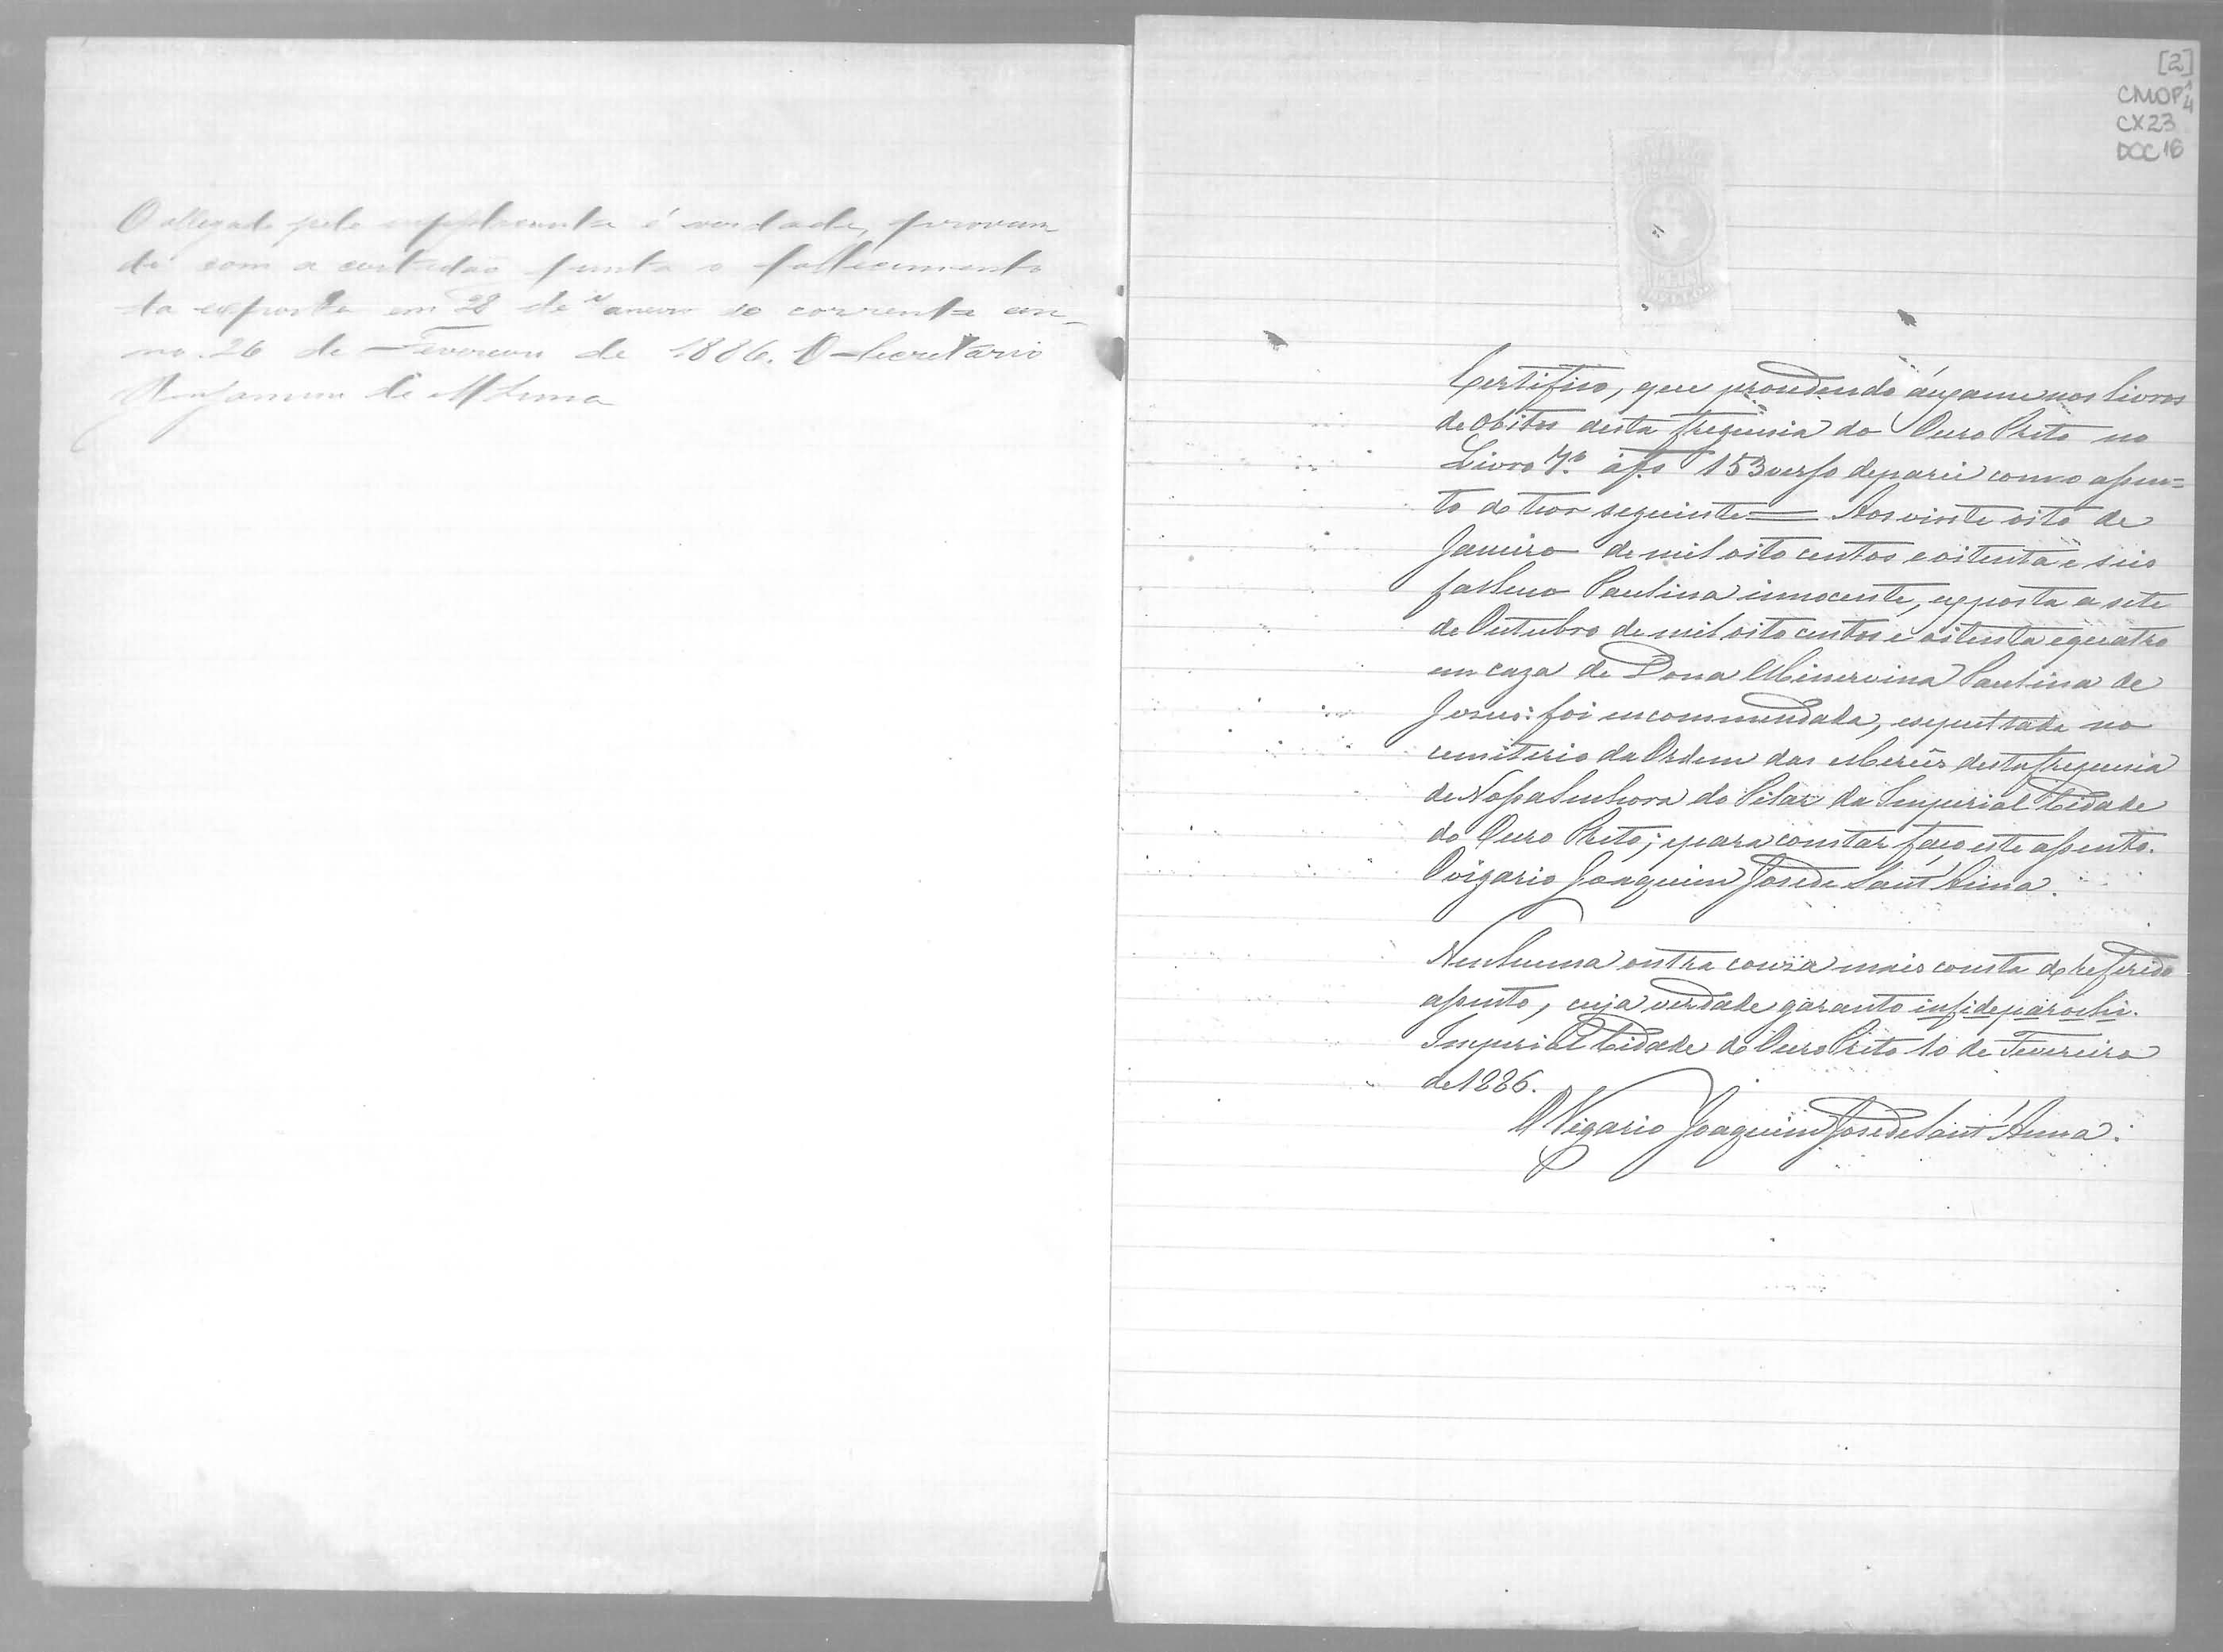 O allegado pela supplicante é verdade, provan
do com a certidão junta o fallecimento
da exposta em 28 de Janeiro do corrente an-
no. 26 de Fevereiro de 1886. O Secretario
Benjamim de Lima
[2]
CMOP 1/4
CX23
DOC 16
Certifico, que procedendo á exame nos livros
de Obitos desta freguesia do Ouro Preto no
Livro 7º á fs 153 verso deparei com o assen=
to do teor seguinte = Aos vinte oito de
Janeiro de mil oito centos e oitenta e seis
falleceo Paulina innocente, exposta a sete
de Outubro de mil oito centos e oitenta e quatro
em caza de Dona Minervina Paulina de
Jesus: foi encommendada, e sepultada no
cemiterio da Ordem das Mercês desta freguesia
de Nossa Senhora do Pilar da Imperial Cidade
do Ouro Preto; e para constar faço este assento.
O vigario Joaquim José de Sant'Anna.
Nenhuma outra couza mais consta do referido
assento, cuja verdade garanto in fide parochi.
Imperial Cidade do Ouro Preto 10 de Fevereiro
de 1886.
O Vigario Joaquim José de Sant'Anna.